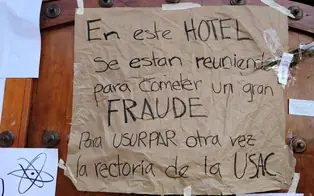 En este HOTEL
Se estan reuniendo
para cometer un gran
FRAUDE
Para USURPAR otra vez
la rectoria de la USAC